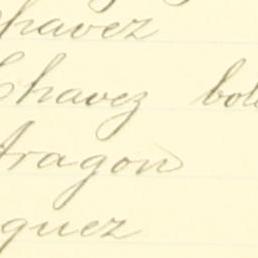 havez
Chavez bol
Aragon
guez